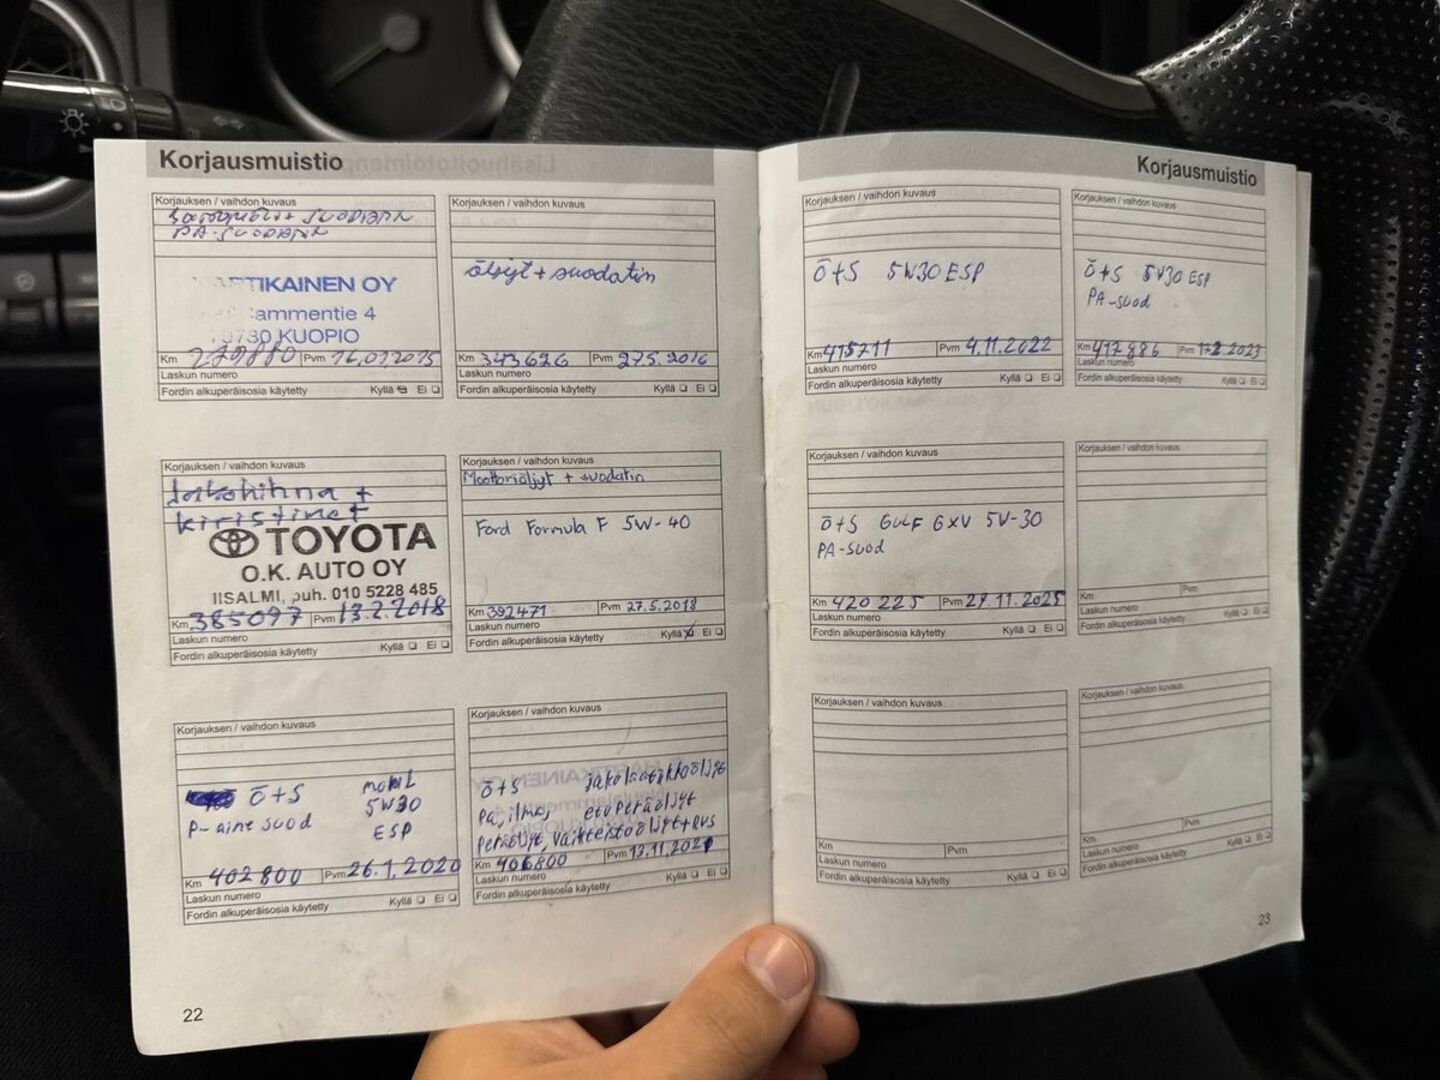 Korjausmuistio
Korjauksen / vaihdon kuvaus
SUODATIN
PA-SUODATIN
TIKAINEN OY
ammentie 4
KUOPIO
Km 279880 Pvm 16.07.2015
Laskun numero
Fordin alkuperäisosia käytetty Kyllä Ei
Korjauksen / vaihdon kuvaus
öljyt + suodatin
Km 343626 Pvm 27.5.2016
Laskun numero
Fordin alkuperäisosia käytetty Kyllä Ei
Korjauksen / vaihdon kuvaus
Jakohihna +
kiristimet
TOYOTA
O.K. AUTO OY
IISALMI, puh. 010 5228 485
Km 385097 Pvm 13.2.2018
Laskun numero
Fordin alkuperäisosia käytetty Kyllä Ei
Korjauksen / vaihdon kuvaus
Moottoriöljyt + suodatin
Ford Formula F 5W-40
Km 392471 Pvm 27.5.2018
Laskun numero
Fordin alkuperäisosia käytetty Kyllä Ei
Korjauksen / vaihdon kuvaus
Ö+S MOBIL
5W30
P-aine suod ESP
Km 402800 Pvm 26.1.2020
Laskun numero
Fordin alkuperäisosia käytetty Kyllä Ei
Korjauksen / vaihdon kuvaus
Ö+S jakolaatikkoöljyt
Pa, ilma, etuperäöljyt
Peräöljyt, Vaihteistoöljyt+
Km 406800 Pvm 13.11.2021
Laskun numero
Fordin alkuperäisosia käytetty Kyllä Ei
22
Korjausmuistio
Korjauksen / vaihdon kuvaus
Ö+S 5W30 ESP
Km 415711 Pvm 4.11.2022
Laskun numero
Fordin alkuperäisosia käytetty Kyllä Ei
Korjauksen / vaihdon kuvaus
Ö+S 5W30 ESP
PA-suod
Km 417886 Pvm
Laskun numero
Fordin alkuperäisosia käytetty Kyllä Ei
Korjauksen / vaihdon kuvaus
Ö+S GULF GXV 5W-30
PA-suod
Km 420 225 Pvm 29.11.2025
Laskun numero
Fordin alkuperäisosia käytetty Kyllä Ei
Korjauksen / vaihdon kuvaus
Km Pvm
Laskun numero
Fordin alkuperäisosia käytetty Kyllä Ei
Korjauksen / vaihdon kuvaus
Km Pvm
Laskun numero
Fordin alkuperäisosia käytetty Kyllä Ei
Korjauksen / vaihdon kuvaus
Km Pvm
Laskun numero
Fordin alkuperäisosia käytetty Kyllä Ei
23